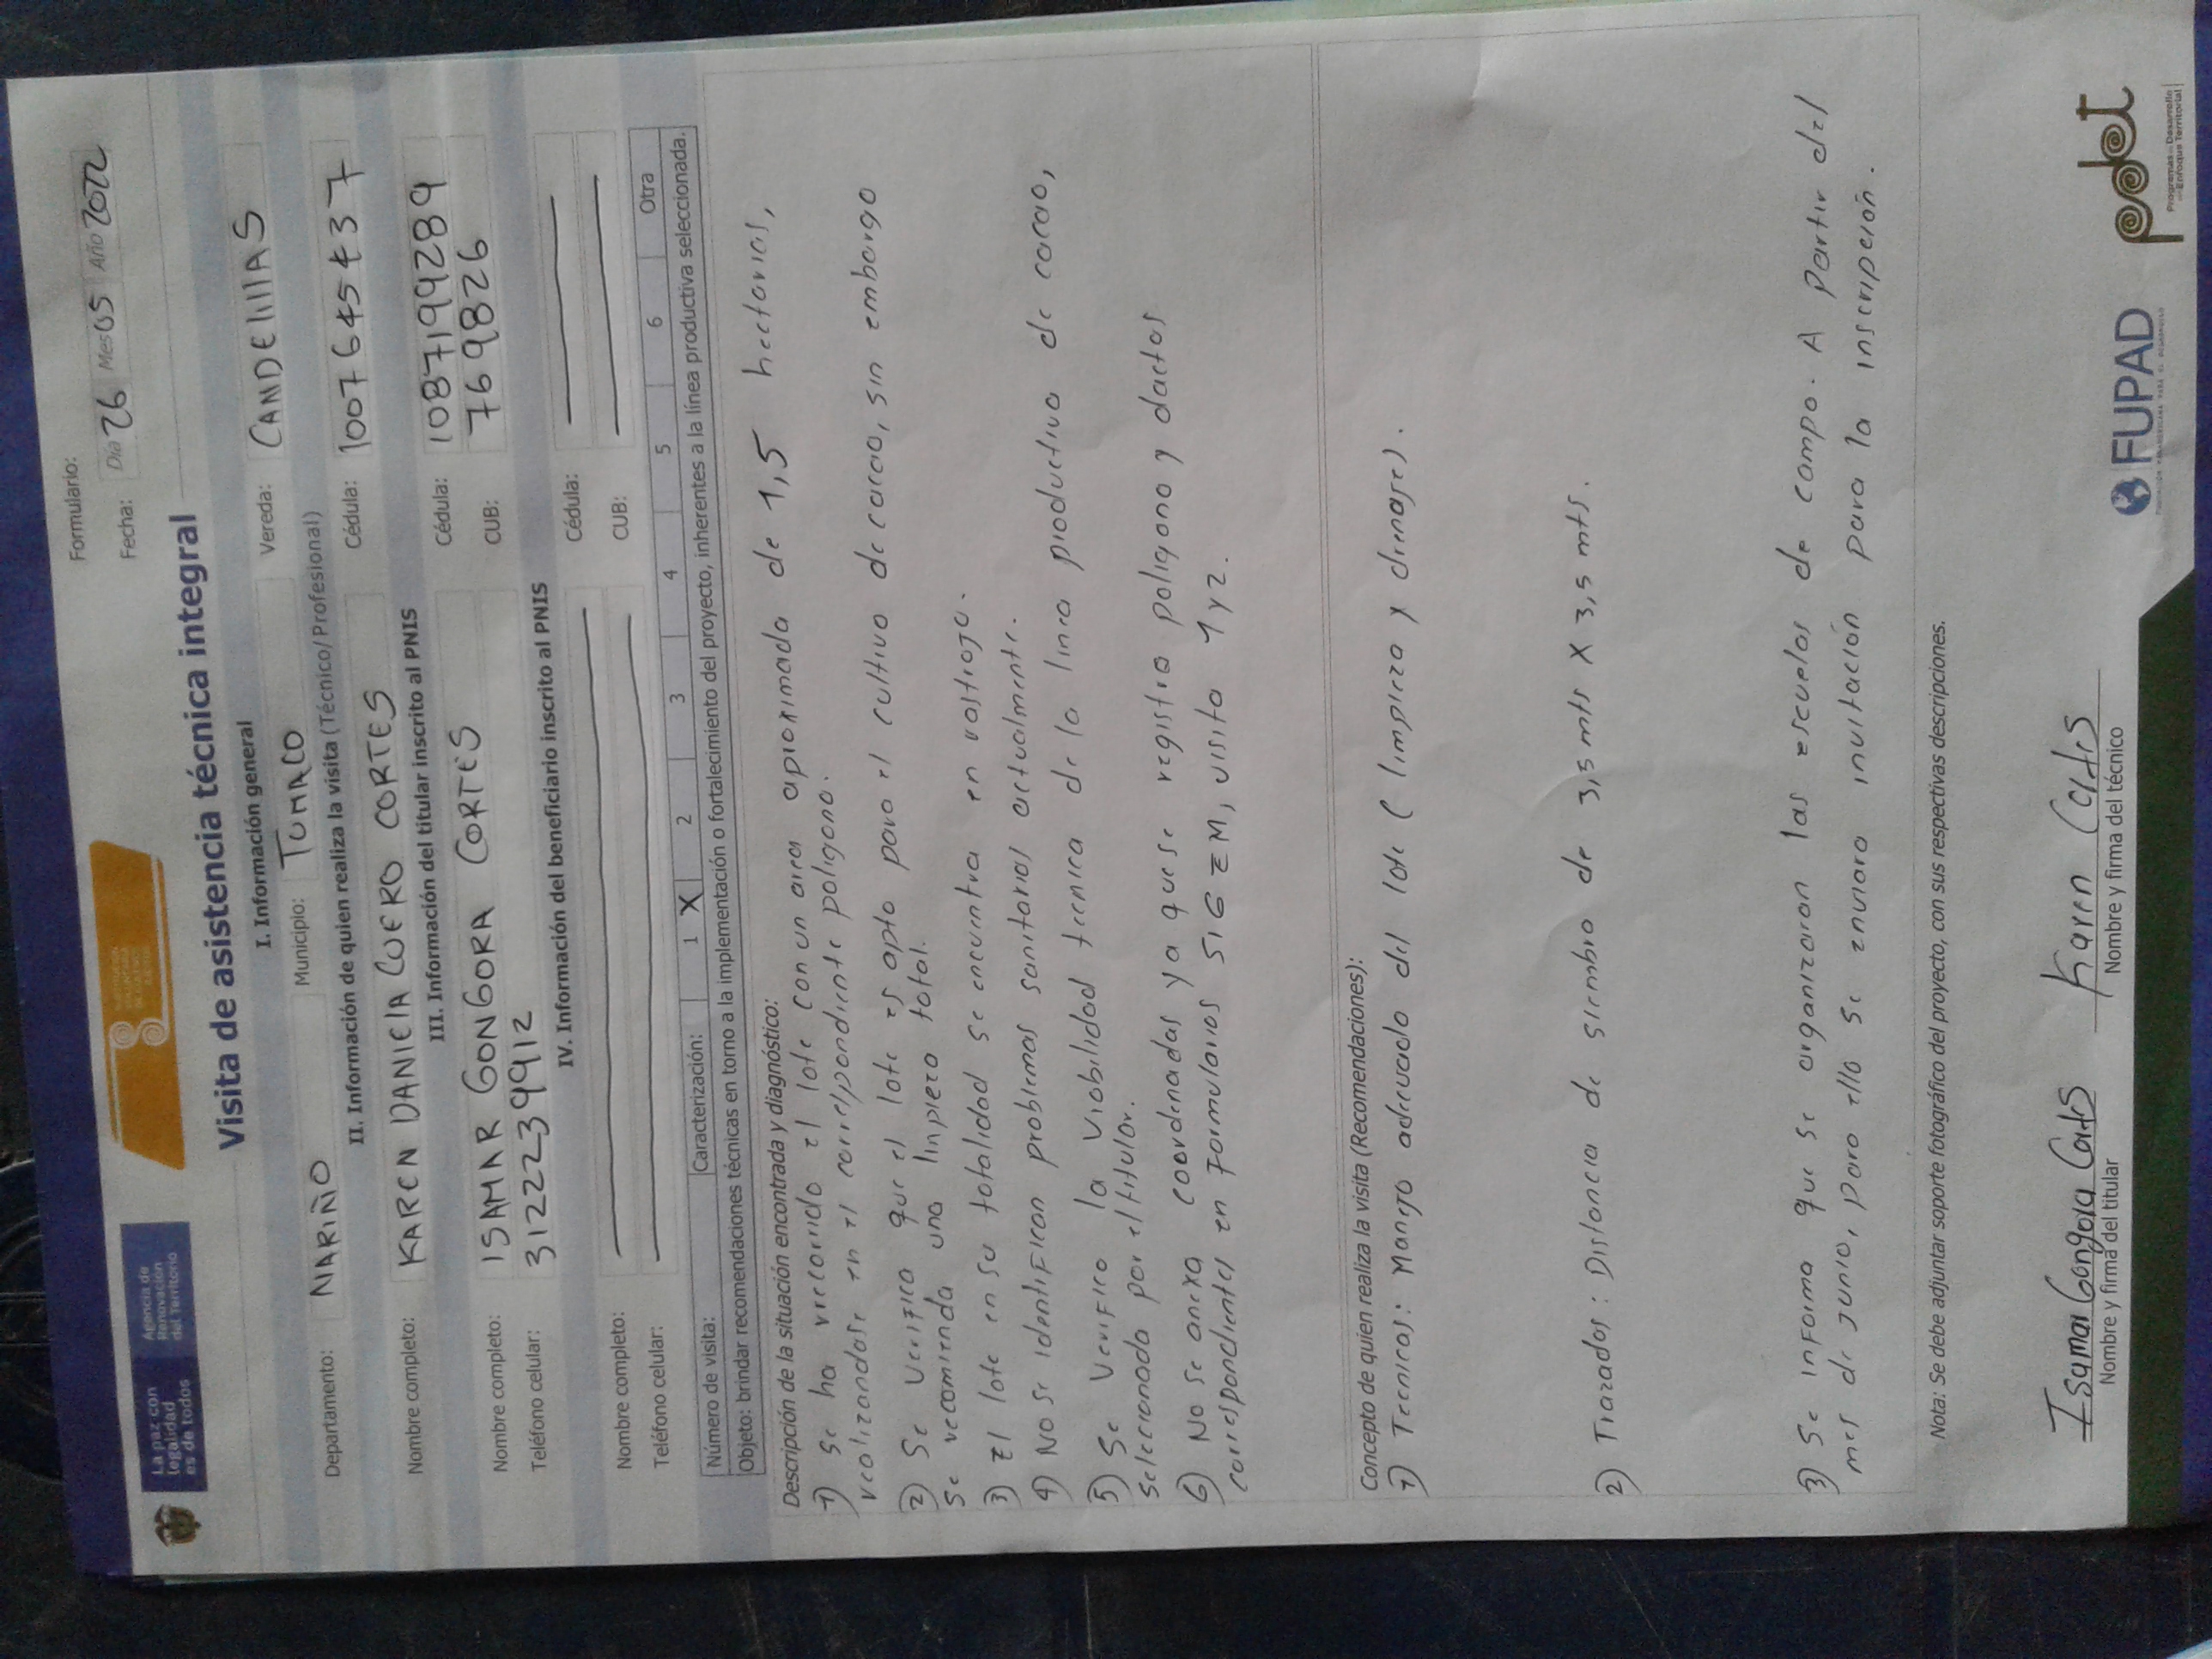 La paz con legalidad es de todos
Agencia de Renovación del Territorio
Formulario:
Fecha: Día 26 Mes 05 Año 2022
Visita de asistencia técnica integral
I. Información general
Departamento: NARIÑO Municipio: TUMACO Vereda: CANDElIllAS
II. Información de quien realiza la visita (Técnico/Profesional)
Nombre completo: KAREN DANIElA CUERO CORTES Cédula: 1007645737
III. Información del titular inscrito al PNIS
Nombre completo: ISAMAR GONGORA CORTES Cédula: 1087199289
Teléfono celular: 3122239912 CUB: 7698826
IV. Información del beneficiario inscrito al PNIS
Nombre completo: Cédula:
Teléfono celular: CUB:
Número de visita: Caracterización: 1 X 2 3 4 5 6 Otra
Objeto: brindar recomendaciones técnicas en torno a la implementación o fortalecimiento del proyecto, inherentes a la línea productiva seleccionada.
Descripción de la situación encontrada y diagnóstico:
1) Se ha recorrido el lote con un area aproximada de 1,5 hectarias,
realizandose en el correspondiente poligono.
2) Se verifica que el lote es apto para el cultivo de cacao, sin embargo
se recomienda una limpieza total.
3) El lote en su totalidad se encuentra en rastrojo.
4) No se identifican problemas sanitarios actualmente.
5) Se verifico la viabilidad tecnica de la linea productiva de cacao,
seleccionada por el titular.
6) No se anexa coordenadas ya que se registra poligono y dactos
correspondientes en formularios SIGEM, visita 1 y 2.
Concepto de quien realiza la visita (Recomendaciones):
1) Tecnicas: Manejo adecuado del lote (limpieza y drenajes).
2) Trazados: Distancia de siembra de 3,5 mts X 3,5 mts.
3) Se informa que se organizaran las escuelas de campo. A partir del
mes de junio, para ello se enviara invitación para la inscripción.
Nota: Se debe adjuntar soporte fotográfico del proyecto, con sus respectivas descripciones.
Isamar Gongora Cortes Karen Cortes
Nombre y firma del titular Nombre y firma del técnico
FUPAD
pdet
Programas de Desarrollo con Enfoque Territorial